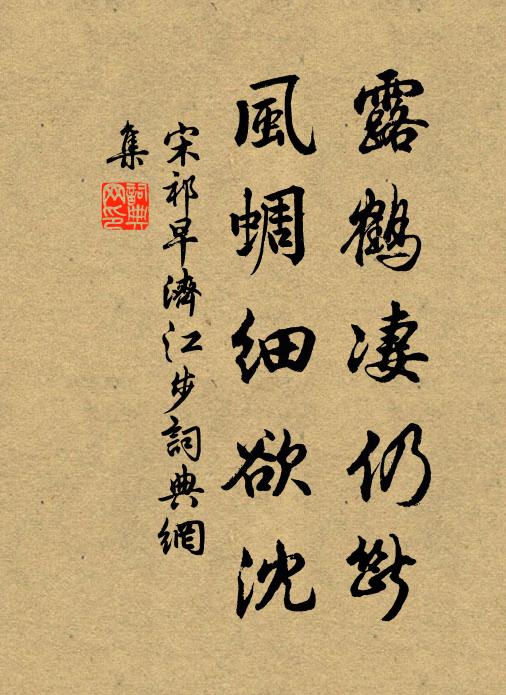 露鶴凄仍斷
風蜩細欲沈
宋祁早濟江步詞典網
集
詞典網印